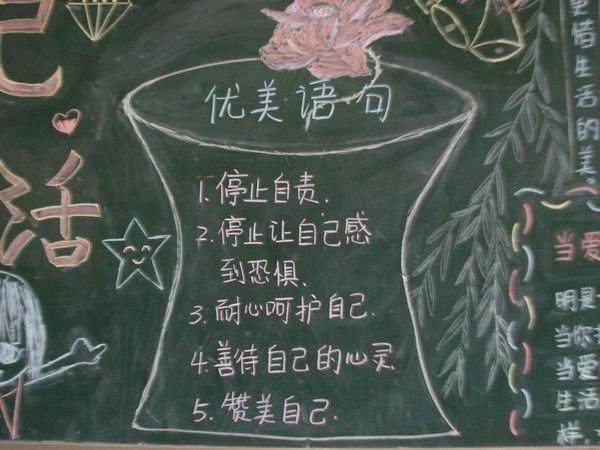 活
优美语句
1.停止自责.
2.停止让自己感
到恐惧.
3.耐心呵护自己.
4.善待自己的心灵
5.赞美自己.
惜生活的美。
当爱
明是
当你
当爱
生活
样,